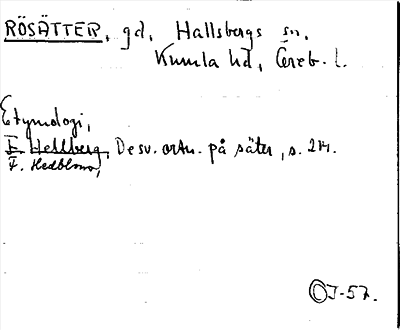 RÖSÄTTER, gd, Hallsbergs sn,
Kumla hd, Öreb. l.
Etymologi,
F. Hellberg, De sv. ortn. på säter, s. 214.
F. Hedblom,
OJ-57.